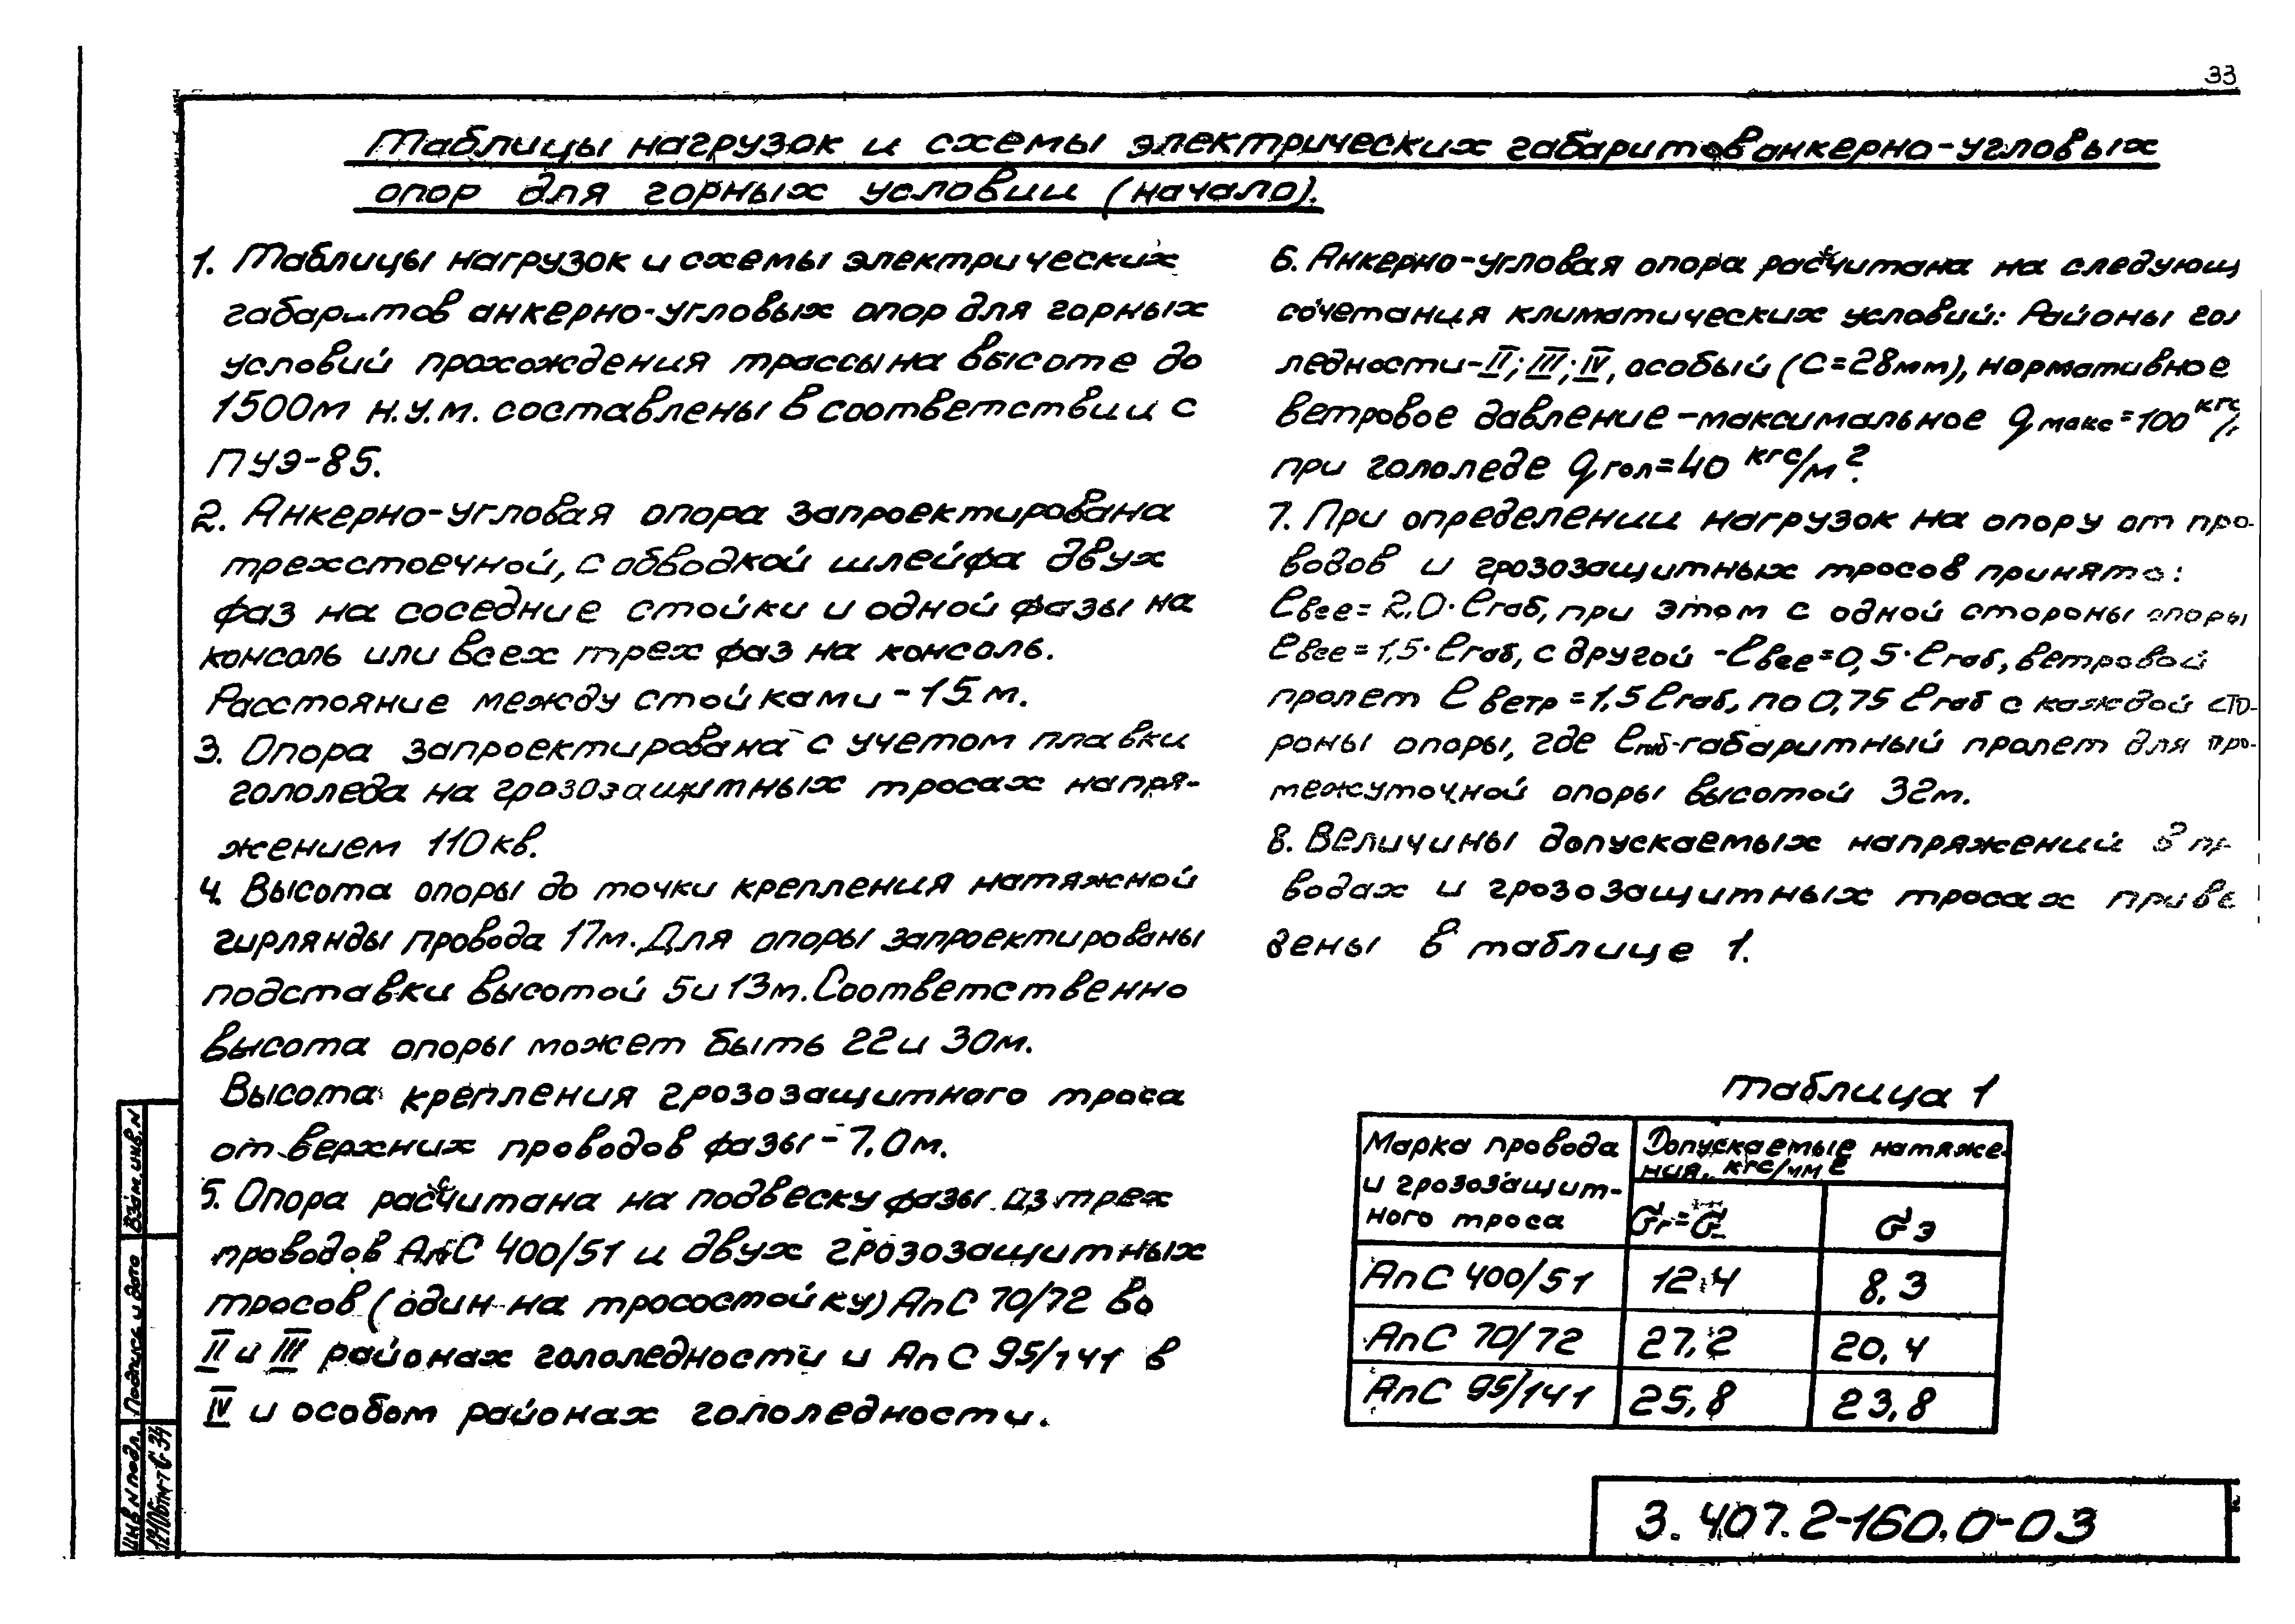 33
Таблицы нагрузок и схемы электрических габаритов анкерно-угловых
опор для горных условии (начало).
1. Таблицы нагрузок и схемы электрических
габаритов анкерно-угловых опор для горных
условий прохождения трассы на высоте до
1500м н.у.м. составлены в соответствии с
ПУЭ-85.
2. Анкерно-угловая опора запроектирована
трехстоечной, с обводкой шлейфа двух
фаз на соседние стойки и одной фазы на
консоль или всех трех фаз на консоль.
Расстояние между стойками - 15 м.
3. Опора запроектирована с учетом плавки
гололеда на грозозащитных тросах напря-
жением 110кв.
4. Высота опоры до точки крепления натяжной
гирлянды провода 17м. Для опоры запроектированы
подставки высотой 5 и 13м. Соответственно
высота опоры может быть 22 и 30м.
Высота крепления грозозащитного троса
от верхних проводов фазы - 7,0м.
5. Опора расчитана на подвеску фазы из трех
проводов АпС 400/51 и двух грозозащитных
тросов (один на тросостойку) АпС 70/72 во
II и III районах гололедности и АпС 95/141 в
IV и особом районах гололедности.
6. Анкерно-угловая опора расчитана на следующ
сочетания климатических условий: Районы гол
ледности-II; III; IV, особый (С=28мм), нормативное
ветровое давление - максимальное qмакс=100 кгс/
при гололеде qгол=40 кгс/м²
7. При определении нагрузок на опору от про-
водов и грозозащитных тросов принято:
ℓвес=2,0·ℓгаб, при этом с одной стороны опоры
ℓвес=1,5·ℓгаб, с другой -ℓвес=0,5·ℓгаб, ветровой
пролет ℓветр=1,5ℓгаб, по 0,75ℓгаб с каждой сто-
роны опоры, где ℓгаб-габаритный пролет для про-
межуточной опоры высотой 32м.
8. Величины допускаемых напряжений в пр
водах и грозозащитных тросах приве
дены в таблице 1.
Таблица 1
Марка провода
и грозозащит-
ного троса
Допускаемые натяже-
ния, кгс/мм²
σг=σ-
σэ
АпС 400/51 12,4 8,3
АпС 70/72 27,2 20,4
АпС 95/141 25,8 23,8
3.407.2-160.0-03
Взам.инв.N
Подпись и дата
Инв N подл.